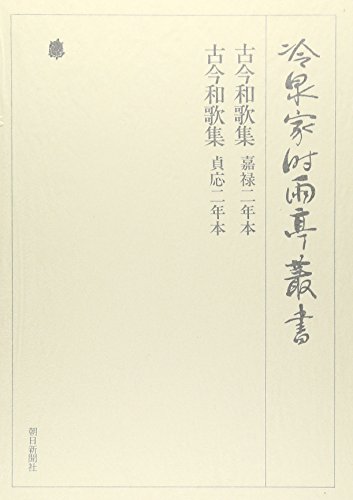 冷泉家時雨亭叢書
古今和歌集 嘉禄二年本
古今和歌集 貞応二年本
朝日新聞社